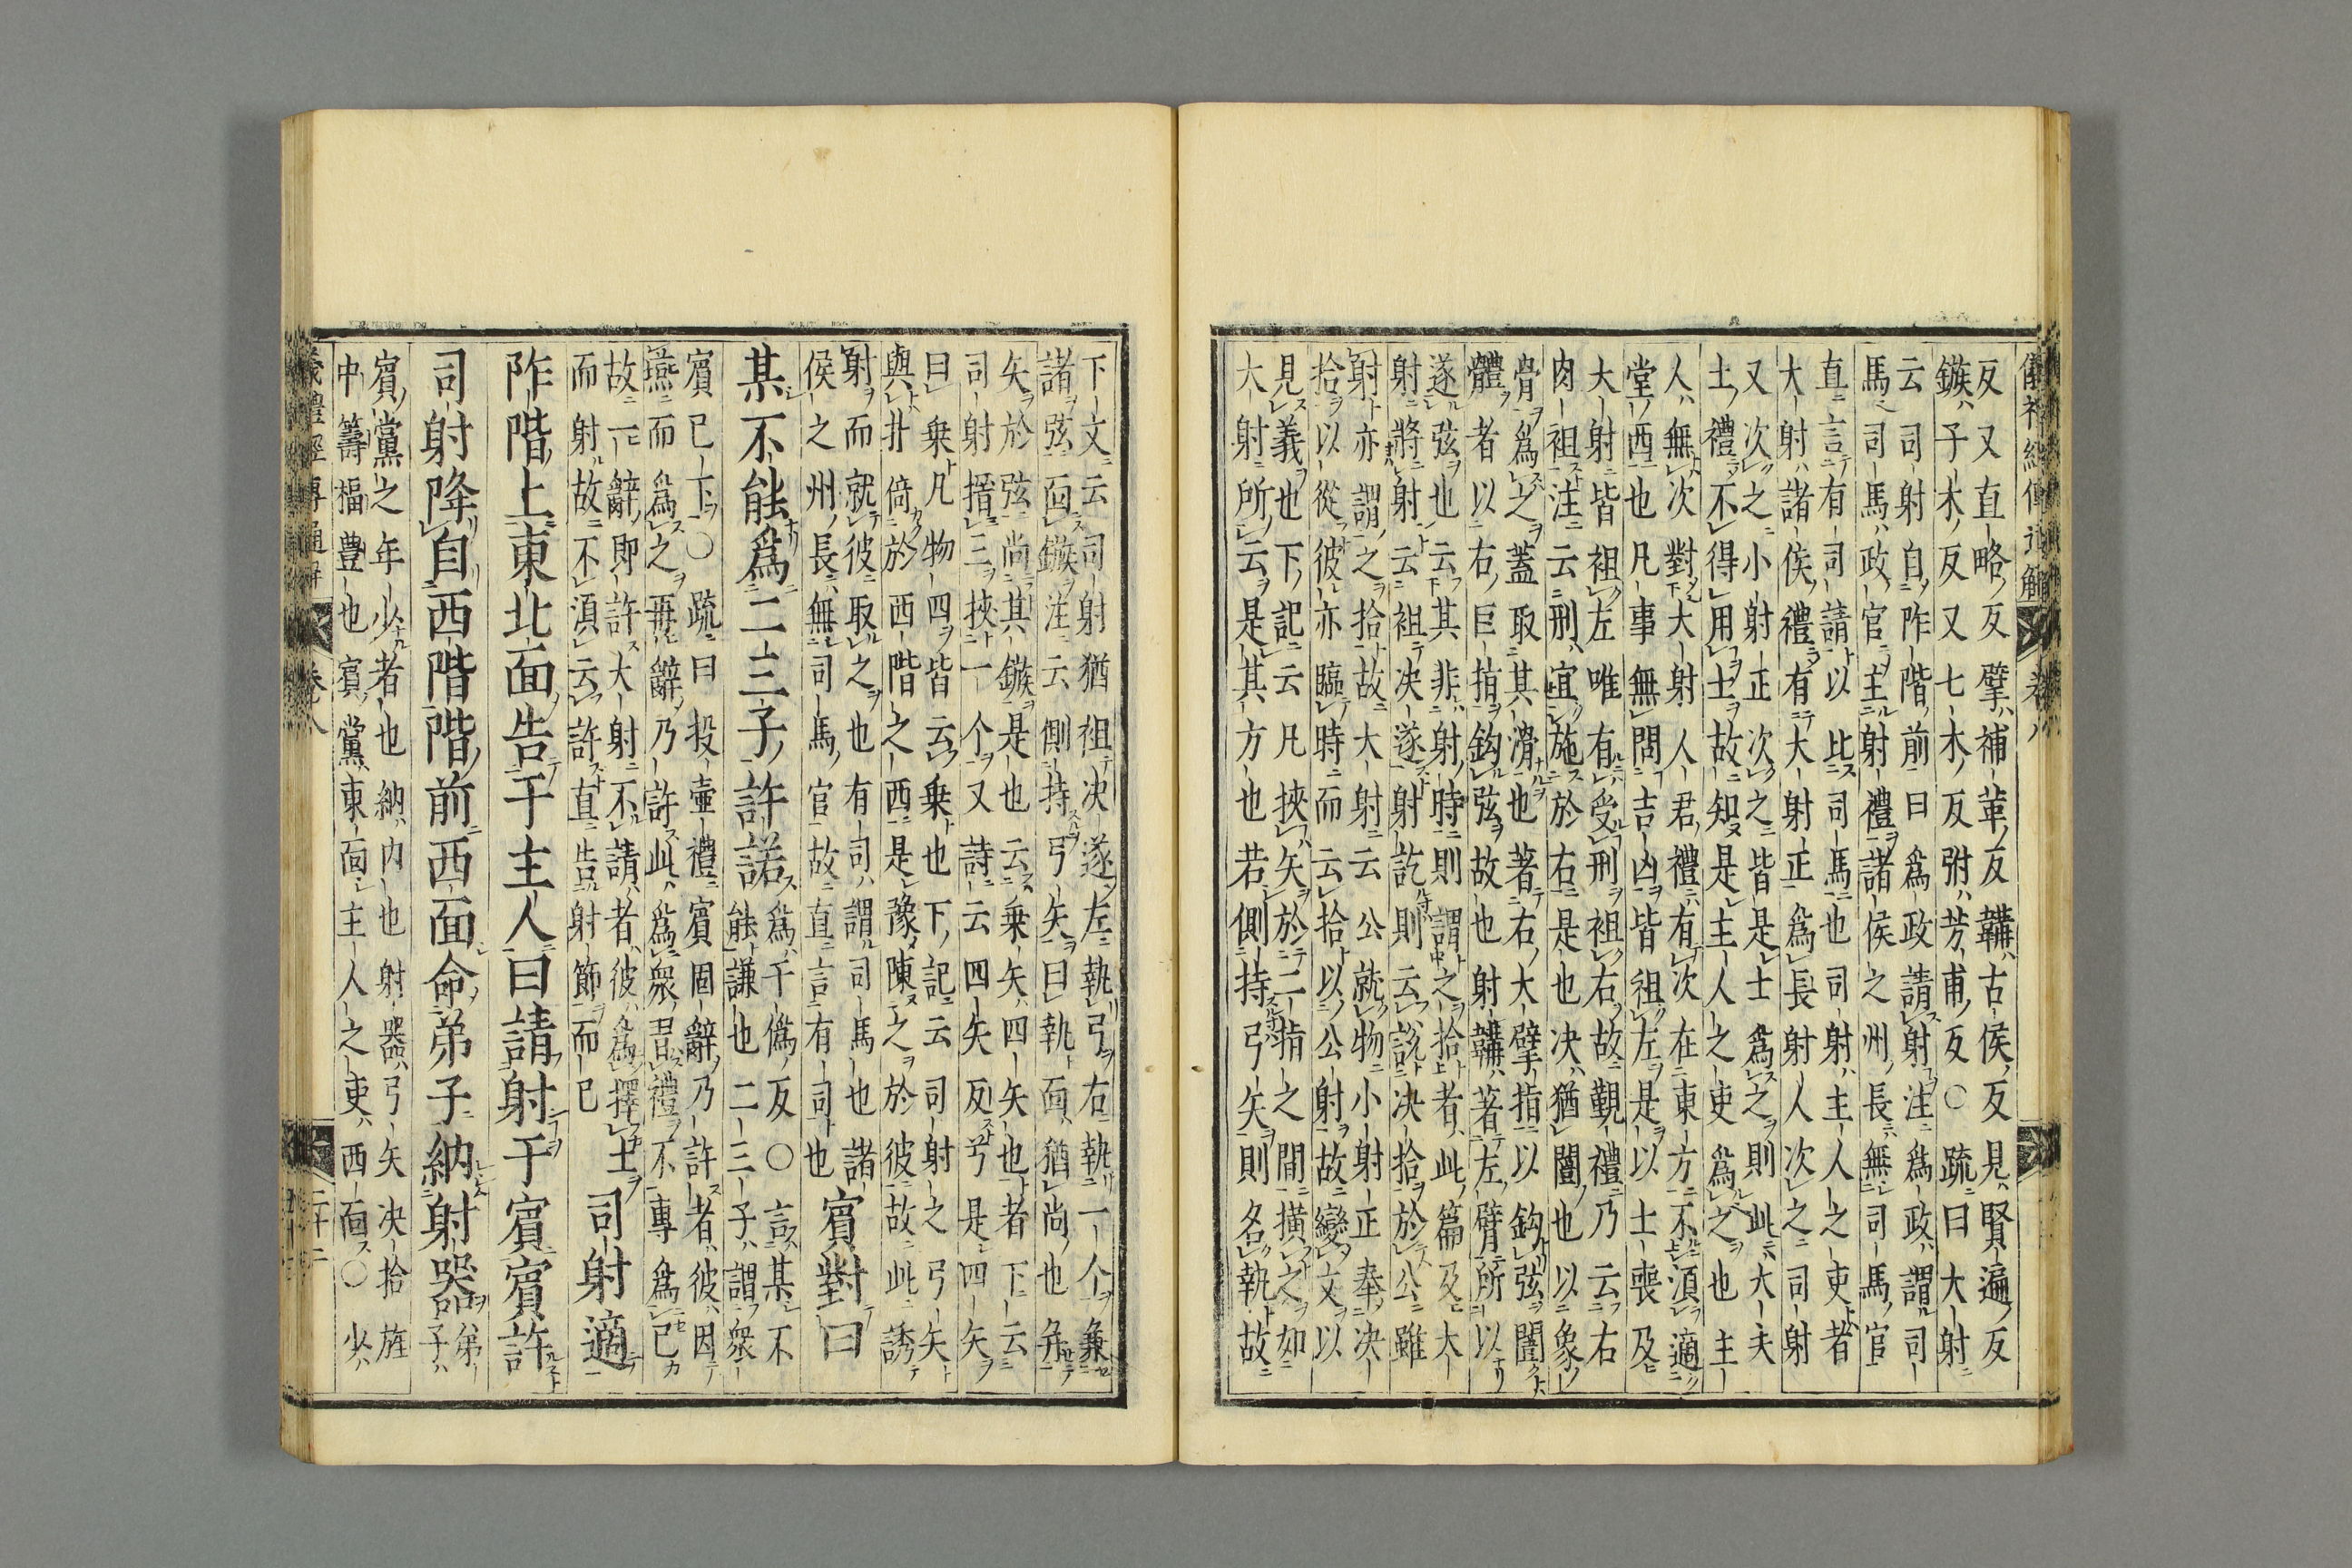 儀禮經傳通解 卷八
反又直略反擘補革反韝古侯反見賢遍反
鏃子木反又七木反弣芳甫反○疏曰大射
云司射自阼階前曰爲政請射注爲政謂司
馬司馬政官主射禮諸侯之州長無司馬官
直言有司請以此司馬也司射主人之吏者
大射諸侯禮有大射正爲長射人次之司射
又次之小射正次之皆是士爲之則此大夫
士禮不得用士故知是主人之吏爲之也主
人無次對大射人君禮有次在東方不須適
堂西也凡事無問吉凶皆袒左是以士喪及
大射皆袒左唯有受刑袒右故覲禮乃云右
肉袒注云刑宜施於右是也决猶闓也以象
骨爲之蓋取其滑也著右大擘指以鈎弦闓
體者以右巨指鈎弦故也射韝著左臂所以
遂弦也云其非射時則謂之拾者此篇及大
射將射云袒决遂射訖則云說决拾於公雖
射亦謂之拾故大射云公就物小射正奉决
拾以從彼亦臨時而云拾以公射故變文以
見義也下記云凡挾矢於二指之間橫之如
大射所云是其方也若側持弓矢則名執故
下文云司射猶袒决遂左執弓右執一个兼
諸弦面鏃注云側持弓矢曰執面猶尚也弁
矢於弦尚其鏃是也云乗矢四矢也者下云
司射搢三挾一个又詩云四矢反兮是四矢
曰乗凡物四皆云乗也下記云司射之弓矢
與扑倚於西階之西是豫陳之於彼故此誘
射而就彼取之也有司謂司馬也諸
侯之州長無司馬官故直言有司也賓對曰
某不能爲二三子許諾爲于僞反○言某不
能謙也二三子謂衆
賓已下○疏曰投壷禮賓固辭乃許者彼因
燕而爲之再辭乃許此爲衆吉禮不專爲已
故一辭即許大射不請者彼爲擇士
而射故不須云許直告射節而已司射適
阼階上東北面告于主人曰請射于賓賓許
司射降自西階階前西面命弟子納射器弟子
賓黨之年少者也納内也射器弓矢决拾旌
中籌楅豊也賓黨東面主人之吏西面○少
儀禮經傳通解 卷八 二十二